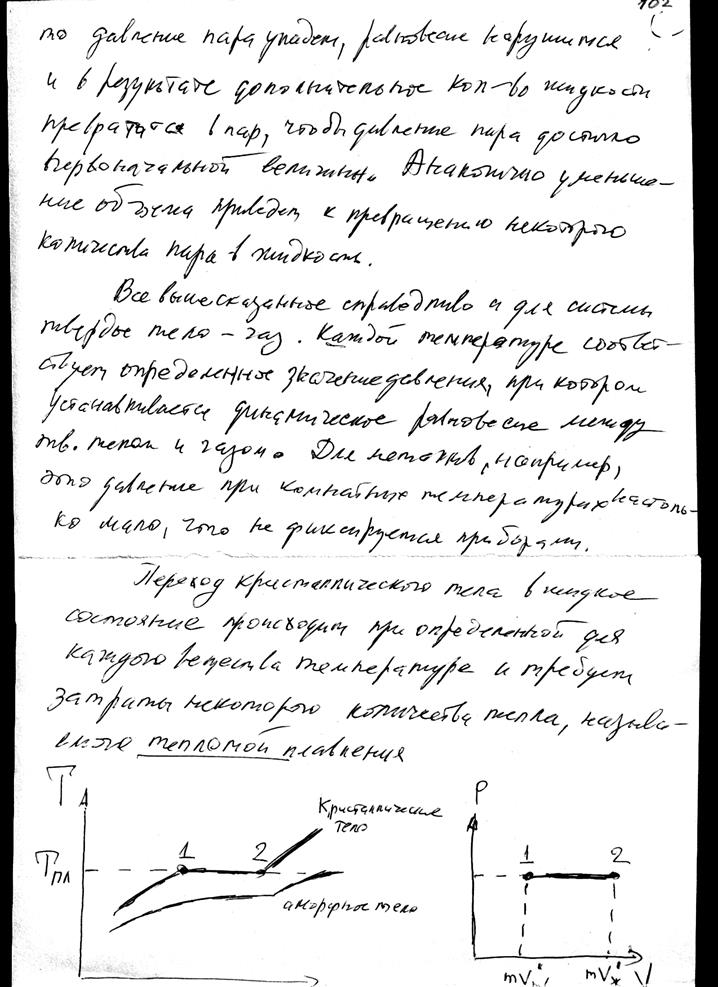 102
то давление пара упадет, равновесие нарушится
и в результате дополнительное кол-во жидкости
превратится в пар, чтобы давление пара достигло
первоначальной величины. Аналогично уменьше-
ние объема приведет к превращению некоторого
количества пара в жидкость.
Все вышесказанное справедливо и для системы
твердое тело – газ. Каждой температуре соответ-
ствует определенное значение давления, при котором
устанавливается динамическое равновесие между
тв. телом и газом. Для металлов, например,
это давление при комнатных температурах настоль-
ко мало, что не фиксируется приборами.
Переход кристаллического тела в жидкое
состояние происходит при определенной для
каждого вещества температуре и требует
затраты некоторого количества тепла, называ-
емого теплотой плавления
T
Tпл
1
2
Кристаллическое
тело
аморфное тело
P
1
2
V